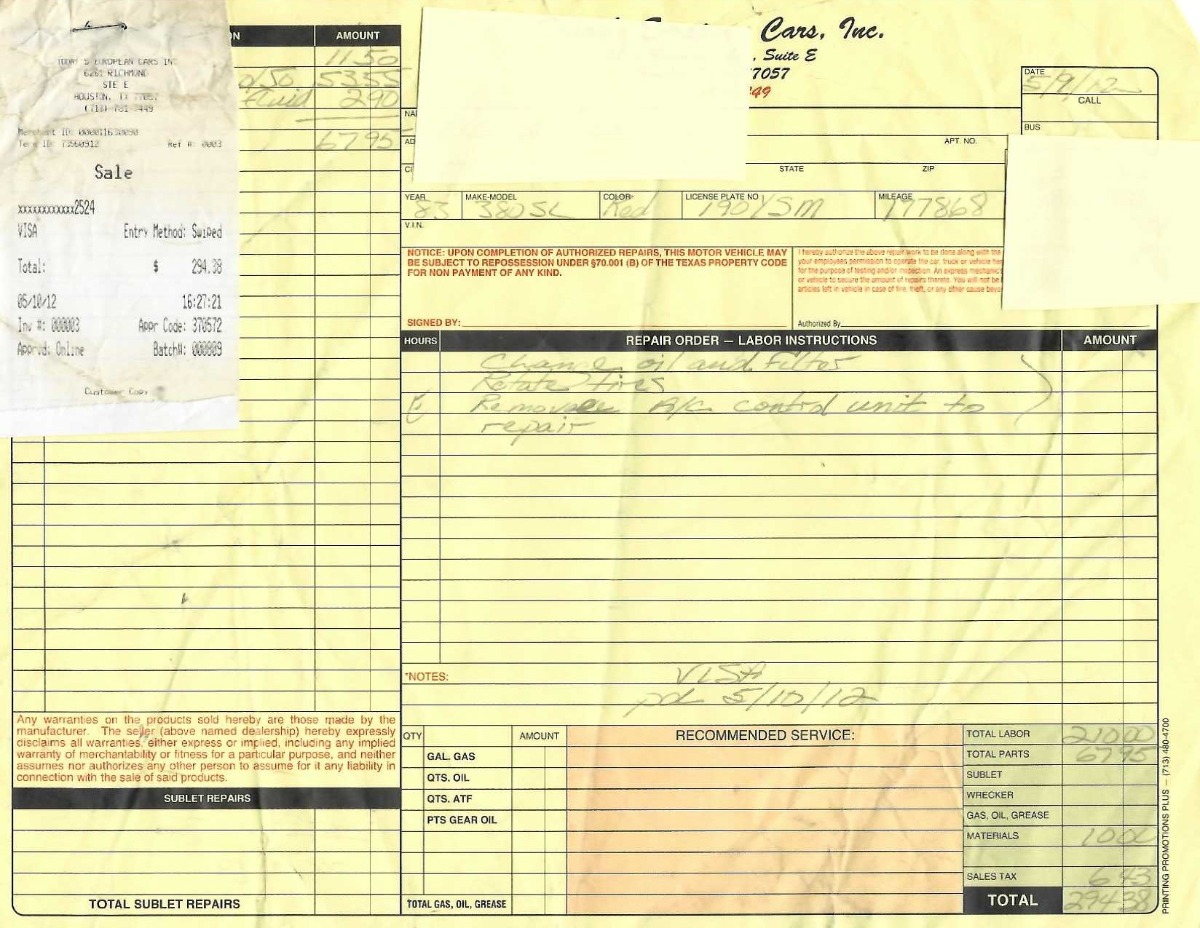 EUROPEAN CARS INC
6261 RICHMOND
STE E
HOUSTON, TX 77057
(713) 781-7449
Merchant ID:
Term ID: 73560912 Ref #: 0003
Sale
xxxxxxxxxxxx2524
VISA Entry Method: Swiped
Total: $ 294.38
05/10/12 16:27:21
Inv #: 000003 Appr Code: 370572
Apprvd: Online Batch#: 000809
Customer Copy
ON AMOUNT
11 50
0/50 53 55
Fluid 2 90
67 95
Cars, Inc.
, Suite E
7057
49
DATE 5/9/12
CALL
BUS
NA
AD APT. NO.
CI STATE ZIP
YEAR 83 MAKE-MODEL 380SL COLOR Red LICENSE PLATE NO 190/SM MILEAGE 177868
V.I.N.
NOTICE: UPON COMPLETION OF AUTHORIZED REPAIRS, THIS MOTOR VEHICLE MAY
BE SUBJECT TO REPOSSESSION UNDER §70.001 (B) OF THE TEXAS PROPERTY CODE
FOR NON PAYMENT OF ANY KIND.
SIGNED BY:
I hereby authorize the above repair work to be done along with the
your employees permission to operate the car, truck or vehicle
for the purpose of testing and/or inspection. An express mechanic
or vehicle to secure the amount of repairs thereto. You will not be
articles left in vehicle in case of fire, theft, or any other cause
Authorized By
HOURS REPAIR ORDER — LABOR INSTRUCTIONS AMOUNT
Change oil and filter
Rotate tires
Remove A/C control unit to
repair
*NOTES:
VISA
pd 5/10/12
Any warranties on the products sold hereby are those made by the
manufacturer. The seller (above named dealership) hereby expressly
disclaims all warranties, either express or implied, including any implied
warranty of merchantability or fitness for a particular purpose, and neither
assumes nor authorizes any other person to assume for it any liability in
connection with the sale of said products.
SUBLET REPAIRS
TOTAL SUBLET REPAIRS
QTY AMOUNT
GAL. GAS
QTS. OIL
QTS. ATF
PTS GEAR OIL
TOTAL GAS, OIL, GREASE
RECOMMENDED SERVICE:
TOTAL LABOR 210 00
TOTAL PARTS 67 95
SUBLET
WRECKER
GAS, OIL, GREASE
MATERIALS 10 00
SALES TAX 6 43
TOTAL 294 38
PRINTING PROMOTIONS PLUS — (713) 480-4700